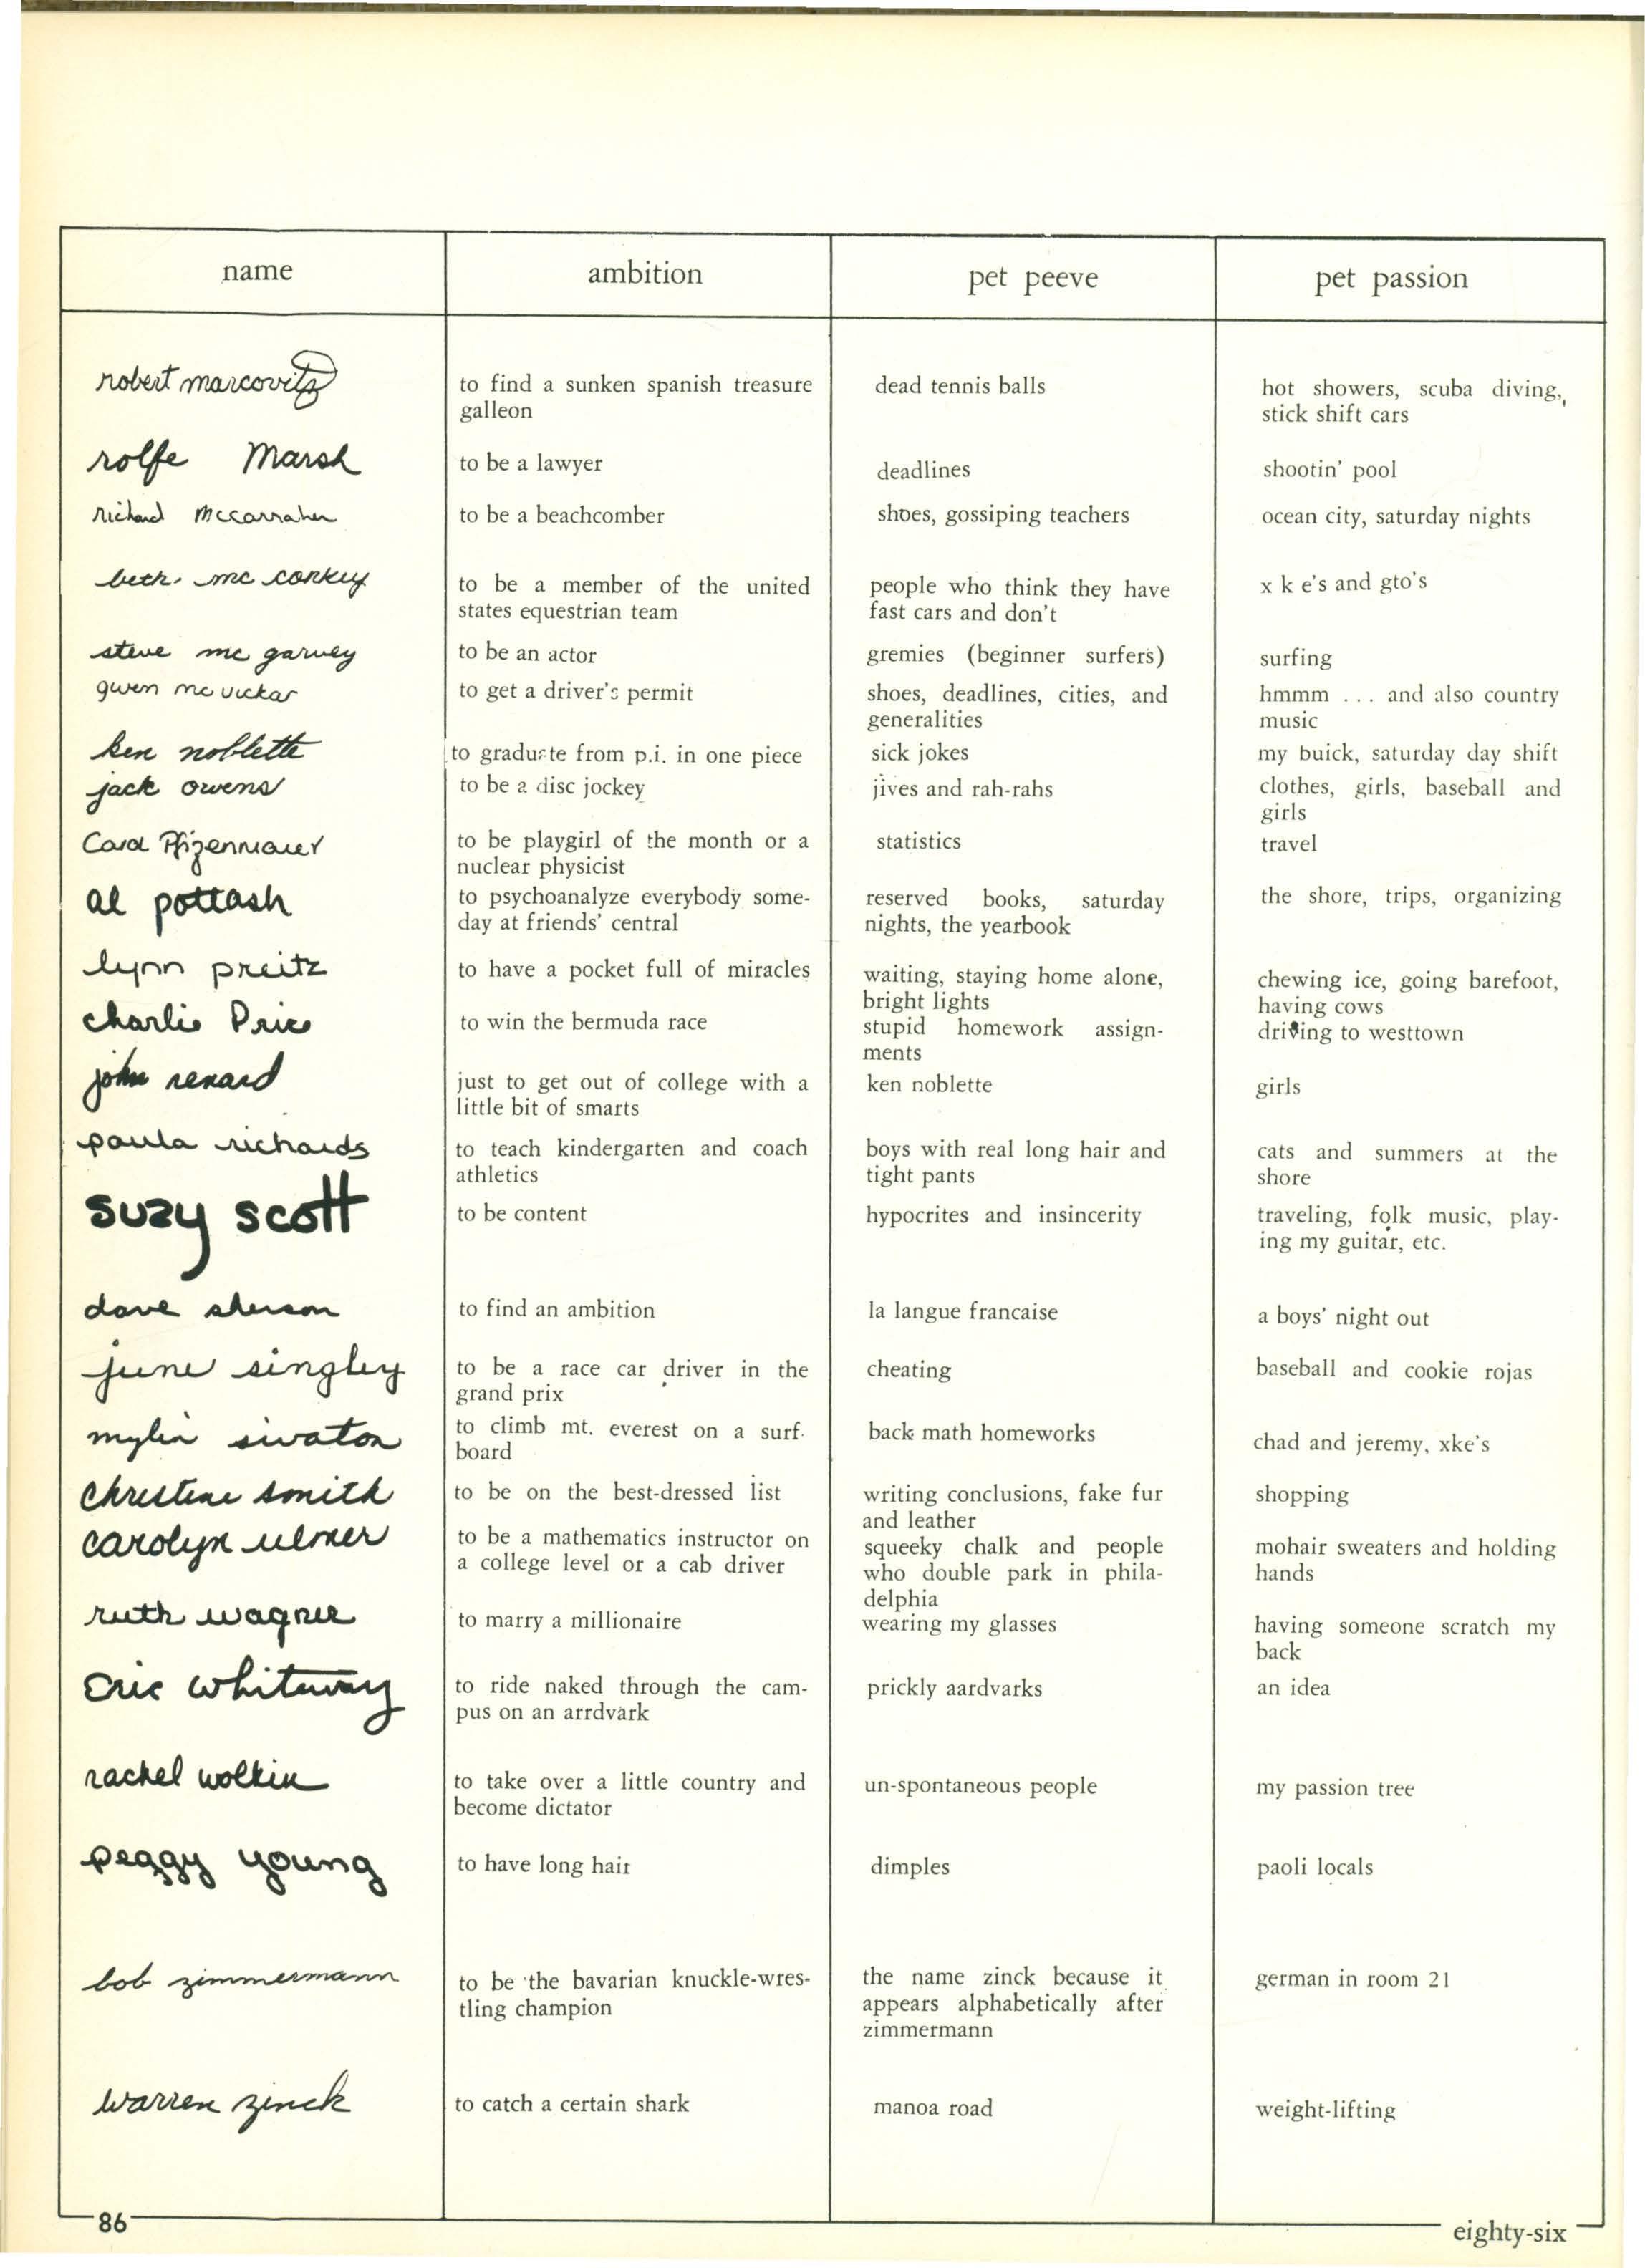 name ambition pet peeve pet passion
robert marcovitz to find a sunken spanish treasure dead tennis balls hot showers, scuba diving,
galleon stick shift cars
rolfe Marsh to be a lawyer deadlines shootin' pool
richard McCarraher to be a beachcomber shoes, gossiping teachers ocean city, saturday nights
beth mc corkey to be a member of the united people who think they have x k e's and gto's
states equestrian team fast cars and don't
steve mc garvey to be an actor gremies (beginner surfers) surfing
gwen mc vickar to get a driver's permit shoes, deadlines, cities, and hmmm ... and also country
generalities music
ken noblette to graduate from p.i. in one piece sick jokes my buick, saturday day shift
jack owens to be a disc jockey jives and rah-rahs clothes, girls, baseball and
girls
Carol Pfizenmaier to be playgirl of the month or a statistics travel
nuclear physicist
al pottash to psychoanalyze everybody some- reserved books, saturday the shore, trips, organizing
day at friends' central nights, the yearbook
lynn preitz to have a pocket full of miracles waiting, staying home alone, chewing ice, going barefoot,
bright lights having cows
charlie Price to win the bermuda race stupid homework assign- driving to westtown
ments
john renard just to get out of college with a ken noblette girls
little bit of smarts
paula richards to teach kindergarten and coach boys with real long hair and cats and summers at the
athletics tight pants shore
suzy scott to be content hypocrites and insincerity traveling, folk music, play-
ing my guitar, etc.
dave sherson to find an ambition la langue francaise a boys' night out
june singley to be a race car driver in the cheating baseball and cookie rojas
grand prix
sivaton to climb mt. everest on a surf- back math homeworks chad and jeremy, xke's
board
christine smith to be on the best-dressed list writing conclusions, fake fur shopping
and leather
carolyn ulmer to be a mathematics instructor on squeeky chalk and people mohair sweaters and holding
a college level or a cab driver who double park in phila- hands
delphia
ruth wagner to marry a millionaire wearing my glasses having someone scratch my
back
eric whiteway to ride naked through the cam- prickly aardvarks an idea
pus on an arrdvark
rachel wolkin to take over a little country and un-spontaneous people my passion tree
become dictator
peggy young to have long hair dimples paoli locals
bob zimmermann to be the bavarian knuckle-wres- the name zinck because it german in room 21
tling champion appears alphabetically after
zimmermann
warren zinck to catch a certain shark manoa road weight-lifting
86 eighty-six